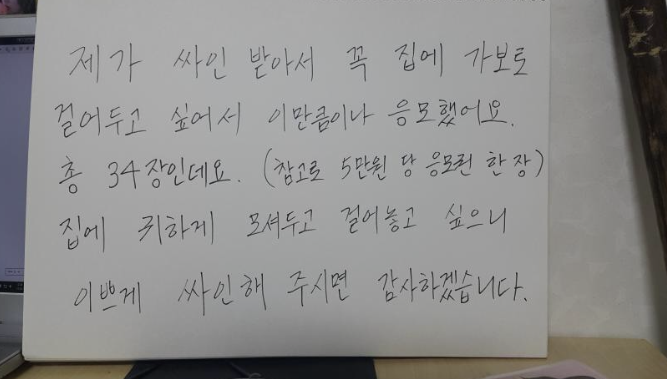 제가 싸인 받아서 꼭 집에 가보로
걸어두고 싶어서 이만큼이나 응모했어요.
총 34장인데요. (참고로 5만원 당 응모권 한 장)
집에 귀하게 모셔두고 걸어놓고 싶으니
이쁘게 싸인해 주시면 감사하겠습니다.